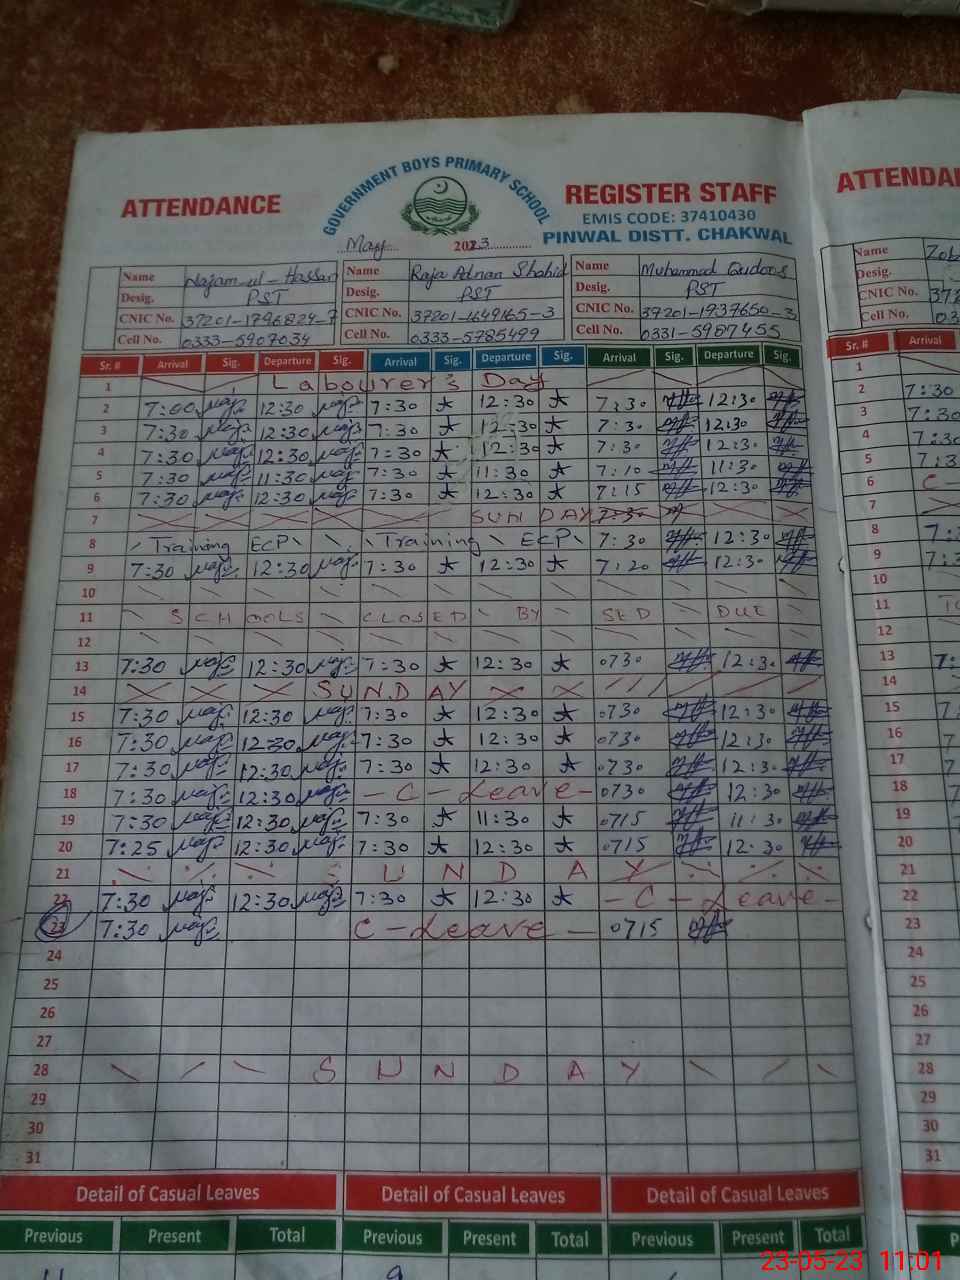 ATTENDANCE
GOVERNMENT BOYS PRIMARY SCHOOL
REGISTER STAFF
EMIS CODE: 37410430
PINWAL DISTT. CHAKWAL
May 2023
ATTENDAN
Name Najam-ul-Hassan Name Raja Adnan Shahid Name Muhammad Qudoos Name
Desig. PST Desig. PST Desig. PST Desig.
CNIC No. 37201-1796824-7 CNIC No. 37201-1649165-3 CNIC No. 37201-1937650-3 CNIC No. 372
Cell No. 0333-5907034 Cell No. 0333-5785499 Cell No. 0331-5987455 Cell No. 03
Sr. # Arrival Sig. Departure Sig. Arrival Sig. Departure Sig. Arrival Sig. Departure Sig. Sr. # Arrival
1 Labourer's Day 1
2 7:00 12:30 7:30 12:30 7:30 12:30 2 7:30
3 7:30 12:30 7:30 12:30 7:30 12:30 3 7:30
4 7:30 12:30 7:30 12:30 7:30 12:30 4 7:30
5 7:30 11:30 7:30 11:30 7:10 11:30 5 7:3
6 7:30 12:30 7:30 12:30 7:15 12:30 6 C-
7 SUNDAY 7:30 7
8 Training ECP Training ECP 7:30 12:30 8 7:3
9 7:30 12:30 7:30 12:30 7:20 12:30 9 7:3
10 10
11 SCHOOLS CLOSED BY SED DUE 11 TO
12 12
13 7:30 12:30 7:30 12:30 0730 12:30 13 7:
14 SUNDAY 14
15 7:30 12:30 7:30 12:30 0730 12:30 15 7
16 7:30 12:30 7:30 12:30 0730 12:30 16 7
17 7:30 12:30 7:30 12:30 0730 12:30 17 7
18 7:30 12:30 - C - Leave - 0730 12:30 18 7
19 7:30 12:30 7:30 11:30 0715 11:30 19 7
20 7:25 12:30 7:30 12:30 0715 12:30 20 7
21 SUNDAY 21
22 7:30 12:30 7:30 12:30 - C - Leave - 22
23 7:30 C - Leave - 0715 23
24 24
25 25
26 26
27 27
28 SUNDAY 28
29 29
30 30
31 31
Detail of Casual Leaves Detail of Casual Leaves Detail of Casual Leaves
Previous Present Total Previous Present Total Previous Present Total P
23-05-23 11:01